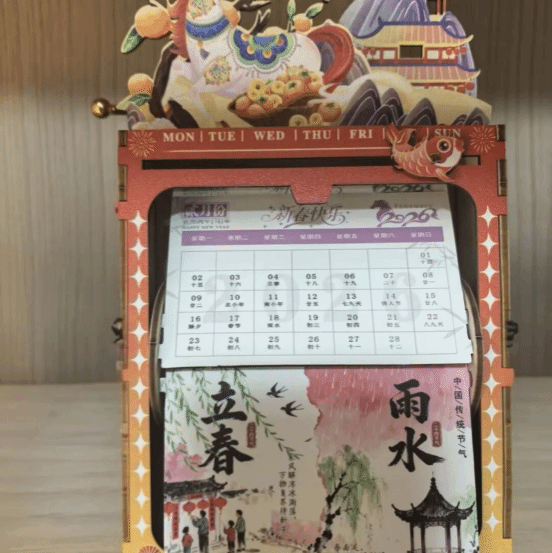 MON | TUE | WED | THU | FRI | SUN
贰月份 新春快乐 2026
HAPPY NEW YEAR
星期一 星期二 星期三 星期四 星期五 星期六 星期日
01
十四
02 03 04 05 06 07 08
十五 十六 立春 十八 十九 二十 廿一
09 10 11 12 13 14 15
廿二 北小年 南小年 廿五 情人节 廿八
16 17 18 19 20 21 22
除夕 春节 雨水 初三 初四 初五
23 24 25 26 27 28
初七 初八 初九 初十 十一 十二
2026
立春
雨水
中国传统节气